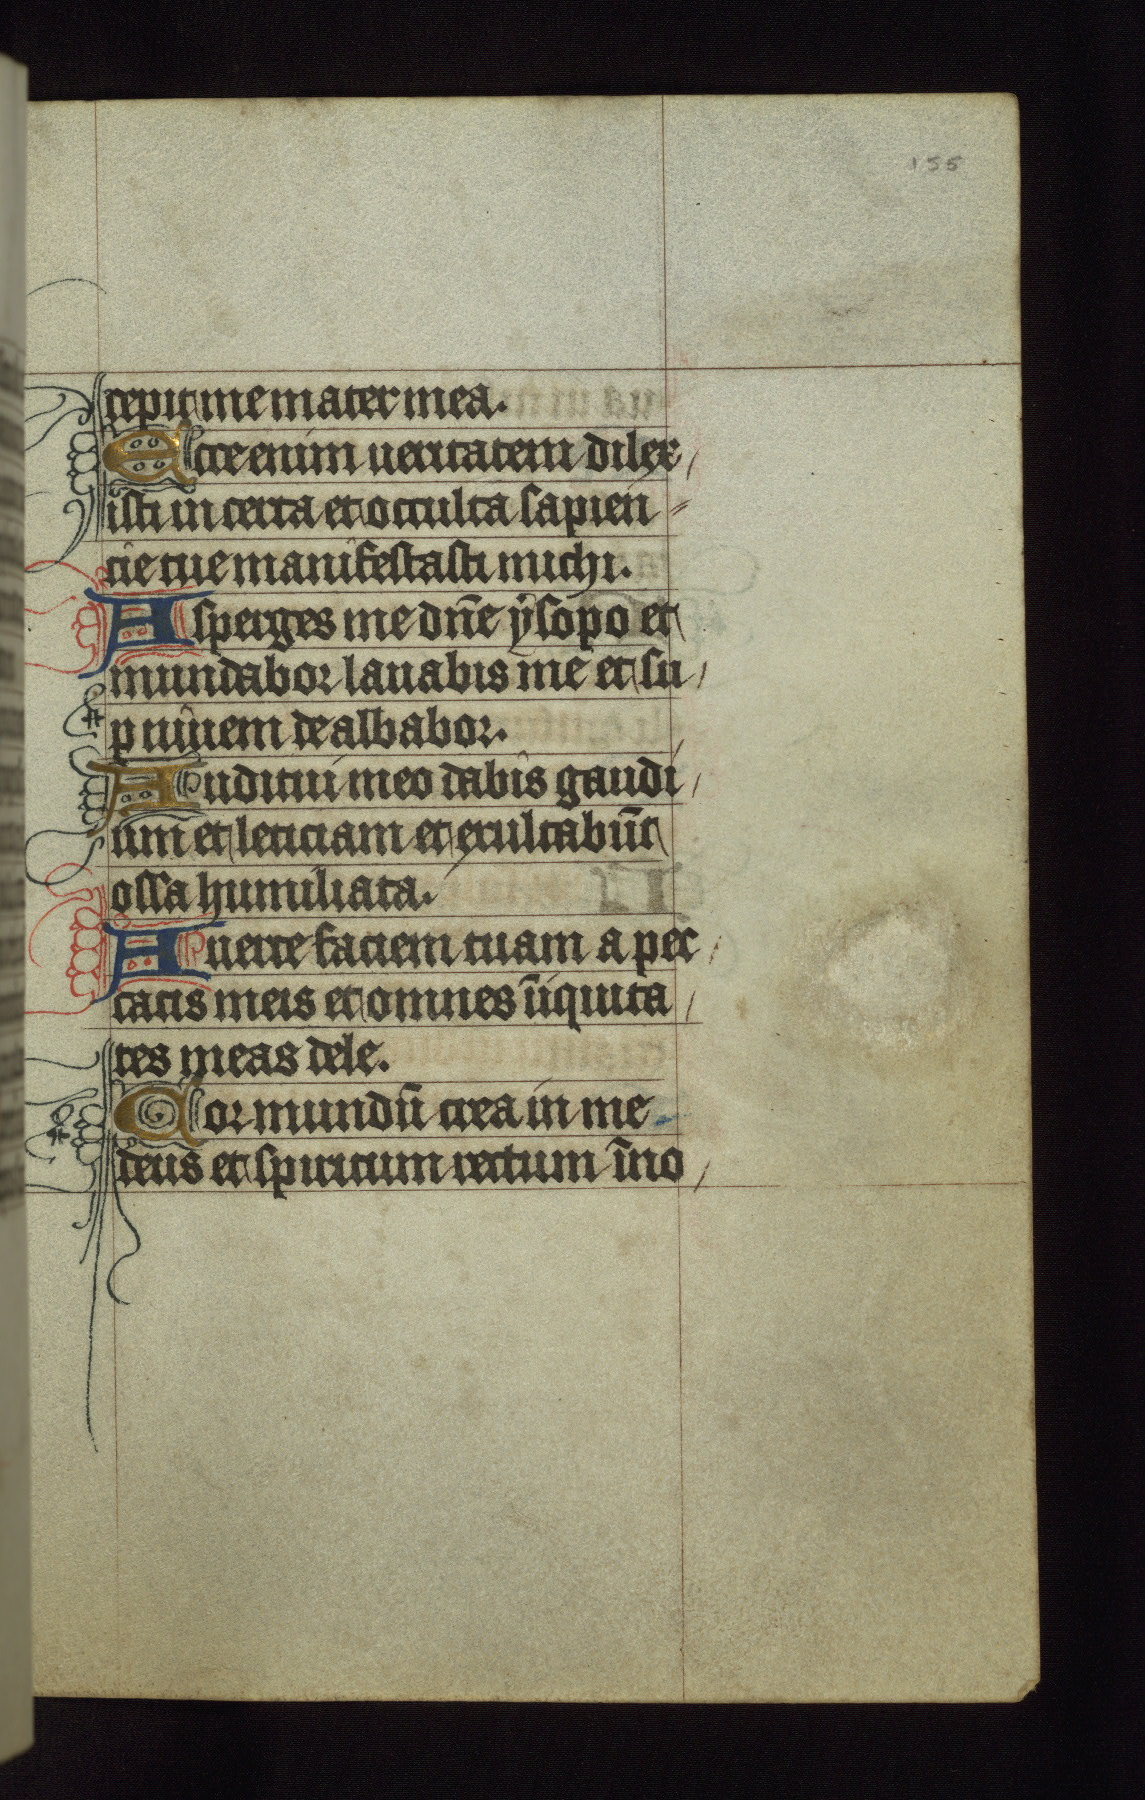 155
cepit me mater mea.
Ecce enim ueritatem dilex/
isti in certa et occulta sapien⸗
cie tue manifestasti michi.
Asperges me dn̄e ysopo et
mundabor lauabis me et su/
p niuem dealbabor.
Auditui meo dabis gaudi/
um et leticiam et exultabūt
ossa humiliata.
Auerte faciem tuam a pec/
catis meis et omnes īiquita/
tes meas dele.
Cor mundū crea in me
deus et spiritum rectum īno/